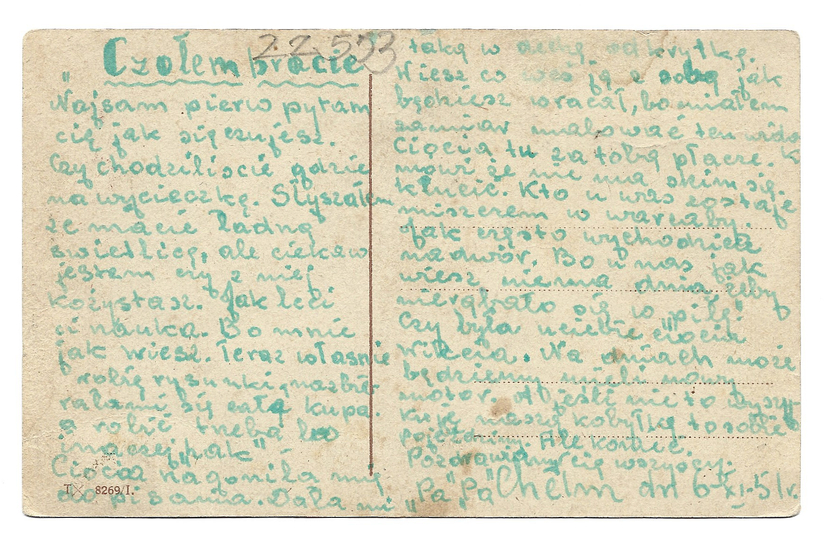 22533
Czołem bracie
"Najsam pierw pytam
cię jak się czujesz.
Czy chodziliście gdzie
na wycieczkę. Słyszałem
że macie ładną
świetlicę, ale ciekaw
jestem czy z niej
kożystasz. Jak leci
ci nauka. Bo mnie
jak wiesz. Teraz własnie
robię rysunki, nazbie-
rało mi się całą kupa.
a robić trzeba bo
inaczej "pak" -
Ciocia nagoniła mnie
do pisania. Dała mi
T 8269/I.
taką w odkrytkę.
Wiesz co weś ją z sobą jak
będziesz wracał, bo miałem
zamiar malować ten wido
Ciocia tu za tobą płacze. K
mówi że nie ma s kim się
kłócić. Kto u was zostaje
miszczem w warcaby.
Jak często wychodzicie
nadwór. Bo u nas jak
wiesz niema dnia żeby
nierąbało się w piłę.
Czy była u ciebie ciocia
Wikcia. Na dniach może
będziemy mieli nowy
motor. A jeśli nie to
naszą kobyłkę to sobie
pojeździmy. Ale koniec.
Pozdrawiamy cię wszyscy.
"Pa" "Pa" Chełm dn 6 XI-51r.